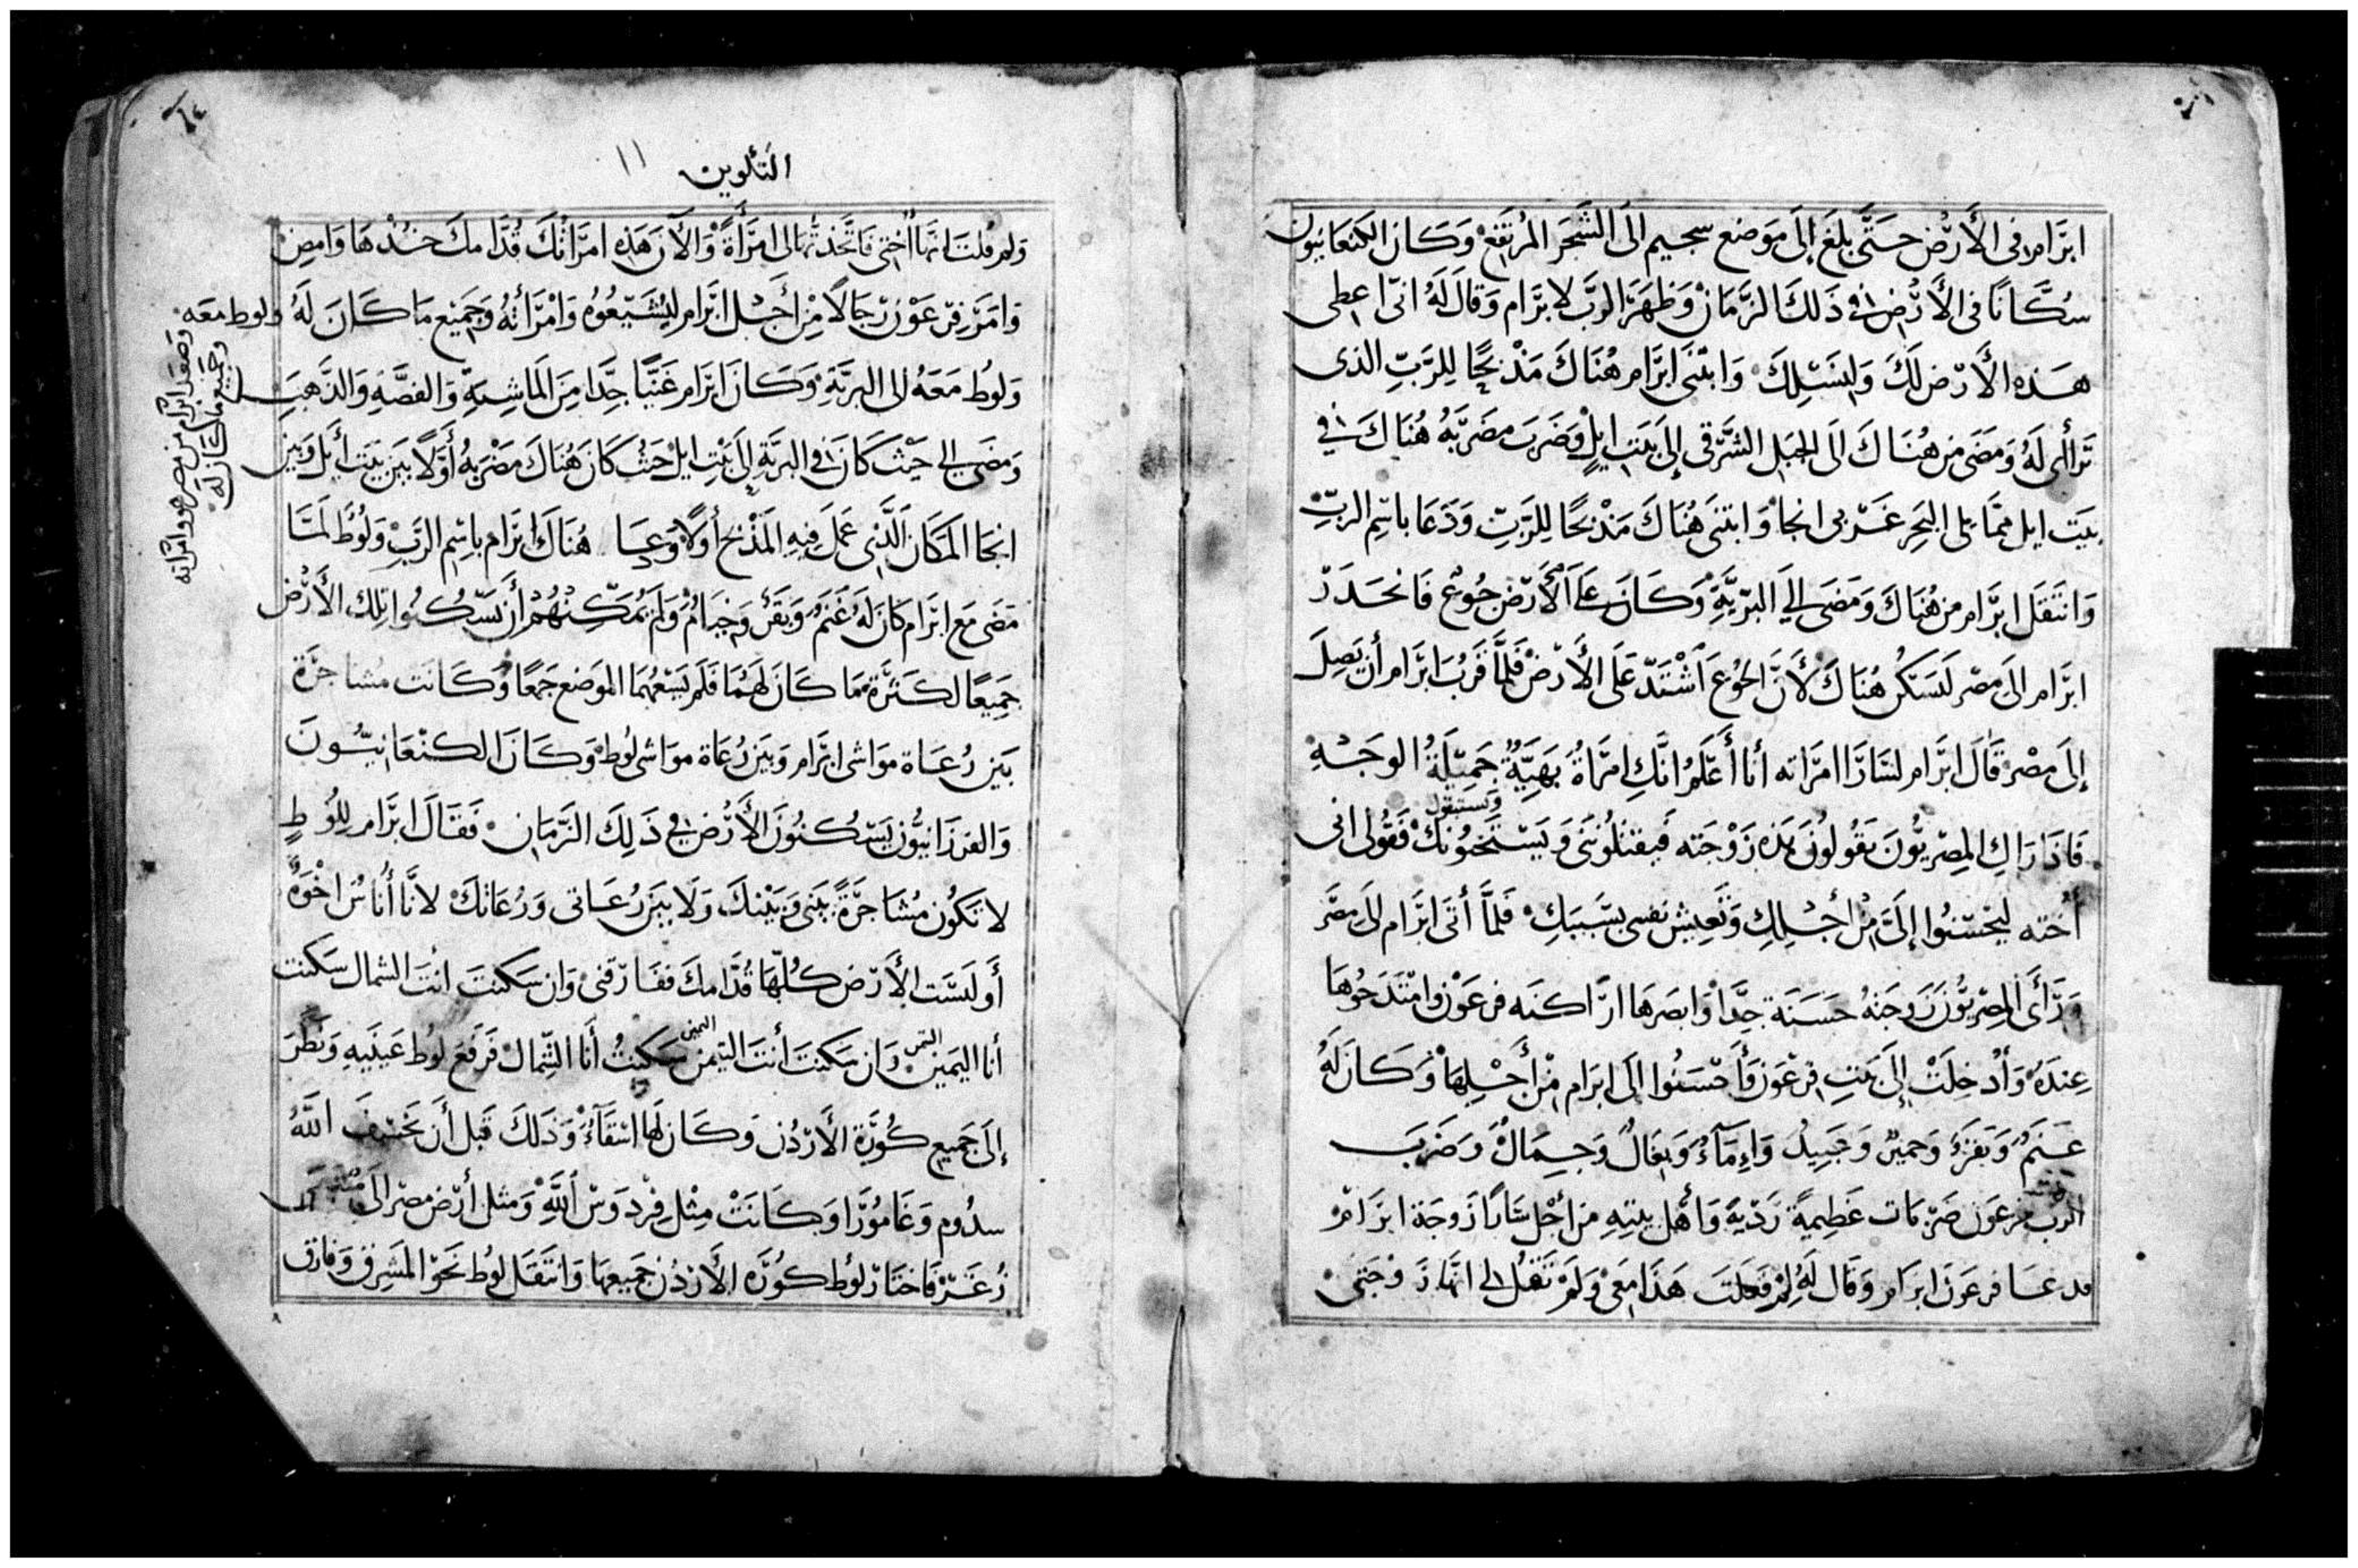 ابرَام فى الأَرْض حَتَّى بلَغَ إلَى مَوَضع سجيم الَى الشَجَر المرتَفعْ وَكَانَ الكنعَانيُون
سُكَّانًا فى الأَرْض فى ذَلكَ الزَّمَانْ وَظهَرَ الرَبّ لابرَام وَقالَ لَهُ انّى اعطى
هَذه الأَرْض لَكَ وَلِنَسْلِكَ وَابتْنَى ابرَام هُنَاكَ مَذْبَحًا لِلرَّبّ الذى
تَراأى لَهُ وَمَضَى من هُنَاكَ الَى الجبَل الشَّرْقى إلَى بَيَت ايلْ وَضَرَبَ مضَرَبَهُ هُنَاكَ فى
بيَت ايل ممَّا يلى البَحِر غَرْبى انجا وَابتنَى هُنَاكَ مَذْبحًا لِلرَّبّ وَدَعَا باسْمِ الربّ
وَانتَقَلَ ابرَام من هُنَاكَ وَمَضَى إلَى البرّيَّةِ وَكَانَ عَلَى الأَرْض جُوع فَانحَدَرَ
ابرَام الَى مصْر لَيسَكُن هُنَاكَ لأَنَّ الجُوعَ اشْتَدّ عَلَى الأَرْض فَلمَّا قَرُبَ ابرَام أَن يَصِلَ
إلَى مصْر قَالَ ابرَام لسَارَا امرَاته أنا أَعْلَمُ انَّكِ امرَاةُ بَهيَّةُ جَميْلَةُ الوجْهِ
فَاذَا رَاكِ المِصْريُّونَ يَقُولُونَ هَذه زَوْجَته فَيقتلُونَنى وَيَسْتَحيُونَكْ فَقُولى انى
وَيستبقوك
أُخته لِيحْسنُوا إلَىَّ مِنْ أَجْلِكِ وَتَعِيش نفسى بسَبَبَكِ فَلَمَّا أَتَى ابرَام الَى مصْر
وَرَأَى المِصْريُّونَ زَوجَتهُ حَسَنَة جدًّا وَابصَرهَا اراكنَه فرعَوْن وامتَدَحُوهَا
عِندَهُ وَأُدْخِلَتْ إلَى بَيتِ فرعَون وَأَحْسَنُوا الَى ابرَام مِنْ أَجْلِهَا وَكَانَ لَهُ
غَنَمُ وَبَقَرُ وَحَميرُ وَعَبيدُ وَإِمَآءُ وَبغَالُ وَجِمَالُ وَضَرَبَ
الرب فرعَون ضَرْبَات عَظِيمةً رَدْيةً وَأَهل بيتهِ من أَجْل سَارَا زَوجَة ابرَامْ
فدعَا فرعَون ابرَام وَقَال لَهُ لمَ فعَلتَ هَذَا مَعى وَلَمْ تَقُل لى انَّهَا زَوْجَتى
التكوين ١١
وَلمَ قُلتَ انَّهَا أُختى فَاتَّخذتُهَا لى امرَأَةً وَالآنَ هَذه امرَاتُكَ قُدَّامكَ خُذْهَا وَامضِ
وَامَرَ فرْعَوْن رجَالًا مِنْ أَجْل ابرَام ليُشَيّعُوهُ وَامْرَأتهُ وَجَميْع مَا كَانَ لَهُ ولوط معَه
وَصعَد ابرام من مصر هو وامراته
وجميع ما كان له
وَلُوط مَعَهُ إلى البريَّةِ وَكَانَ ابرَام غَنيًّا جدًّا مِنَ المَاشِيةِ وَالفضَّةِ وَالذَّهبِ
وَمَضَى إلى حَيْث كَانَ فى البريَّةِ إلَى بَيْتِ ايلْ حَيْثُ كَانَ هُنَاكَ مضْرَبهُ أَوَّلًا بَين بَيت أَيل وَبين
انجَا المَكَان الَّذى عَمِلَ فيهِ المَذْبَح أَوَلًا وَدَعَا هُنَاكَ ابرَام باسْم الرَبّ وَلُوطُ لَمَّا
مَضَى مَع ابرَام كَانَ لَهُ غَنَمُ وَبَقَرُ وَخيَامُ وَلَمْ يُمَكّنهُمْ أَن يَسْكُنُوا تلِك الأَرْض
جَمِيعًا لكَثْرَة مَا كَانَ لَهُمَا فَلَمْ يسَعْهُمَا الموَضع جَمعًا وَكَانَت مُشاجَرَة
بَين رُعَاة مَوَاشى ابرَام وَبَين رُعَاة موَاشى لُوط وَكَانَ الكنْعَانيّونَ
وَالفرزَانيُّون يَسْكُنُونَ الأَرْض فى ذَلِكَ الزَمَان فَقَالَ ابرَام لِلُوطٍ
لا تَكُون مُشَاجَرَةً بَيَنى وَبَيْنِكَ وَلَا بَين رُعَاتى وَرُعَاتكْ لانَّا أُنَاسُ اخْوَةُ
أَوَ لَيسَت الأَرْض كُلّهَا قُدَّامكَ فَفَارقنى وَان سَكنتَ انتَ الشمال سَكنت
أنَا اليَمين وَان سَكنتَ أنتَ التيمن سَكنتُ أَنَا الشِمال فَرفَعَ لُوط عَينَيهِ وَنظَرَ
التيمن اليمين
إلَى جَميع كُورَة الأَرْدُن وَكَان لَهَا استقَآءُ وَذَلكَ قَبل أَن يَخْسفَ اللَّهُ
سدُوم وَغَامُورَا وَكَانَتْ مِثْل فِرْدوَسْ اللَّهِ وَمثل أَرْض مصْر الَى
زُغَرْ فَاختَارَ لُوط كُورَة الأَرْدُن جَميعهَا وَانتَقَل لُوط نَحوَ المَشْرِق وَفارق